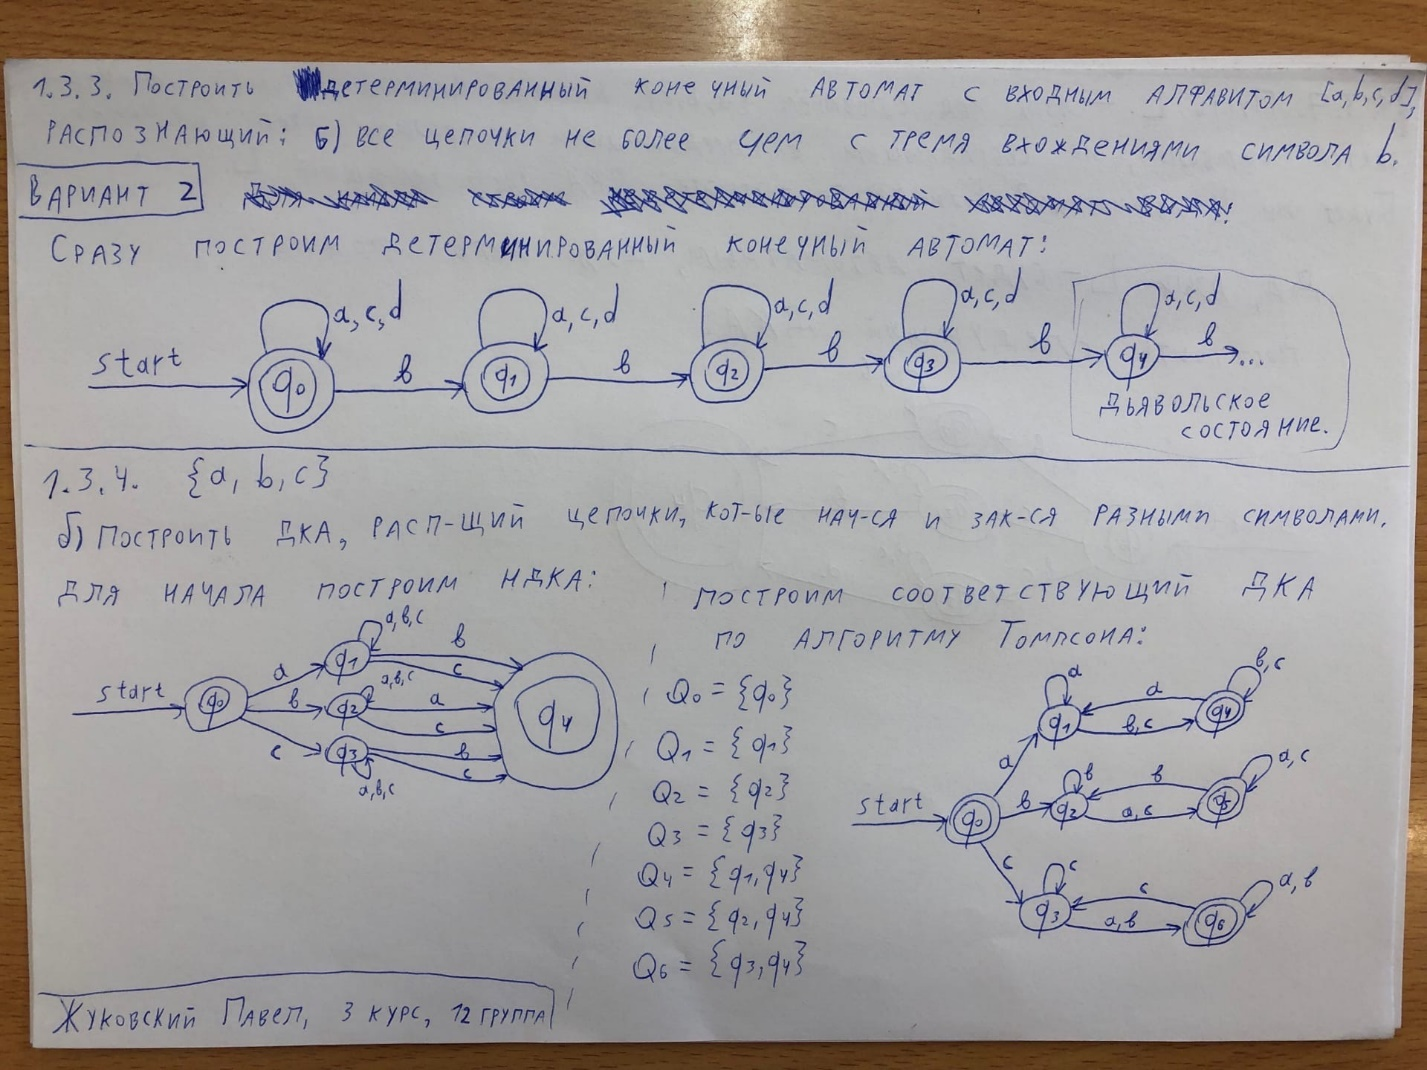 1.3.3. Построить детерминированный конечный автомат с входным алфавитом [a,b,c,d],
распознающий: б) все цепочки не более чем с тремя вхождениями символа b.
Вариант 2
Сразу построим детерминированный конечный автомат:
a,c,d a,c,d a,c,d a,c,d a,c,d
start q0 в q1 в q2 в q3 в q4 в ...
Дьявольское
состояние.
1.3.4. {a, b, c}
б) Построить ДКА, расп-щий цепочки, кот-ые нач-ся и зак-ся разными символами.
Для начала построим НДКА:
a,в,c
start q0 a q1 в c
в q2 a,в,c a c q4
c q3 в c
a,в,c
Построим соответствующий ДКА
по алгоритму Томпсона:
Q0 = {q0}
Q1 = {q1}
Q2 = {q2}
Q3 = {q3}
Q4 = {q1,q4}
Q5 = {q2,q4}
Q6 = {q3,q4}
a в,c
a q1 a в,c q4
в в a,c
start q0 в q2 a,c q5
c c c a,в
q3 a,в q6
Жуковский Павел, 3 курс, 12 группа